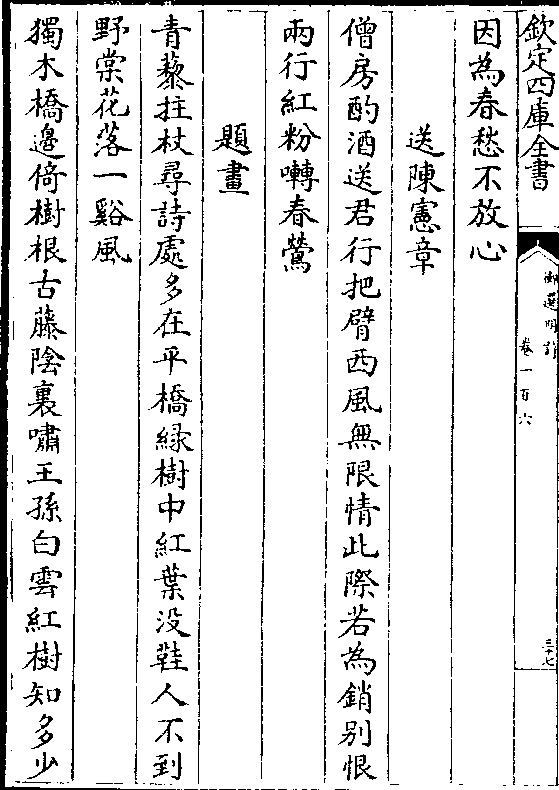 欽定四庫全書
御選明詩
卷一百六
三十七
因為春愁不放心
送陳憲章
僧房酌酒送君行把臂西風無限情此際若為銷別恨
兩行紅粉囀春鶯
題畫
青藜拄杖尋詩處多在平橋緑樹中紅葉没鞋人不到
野棠花落一谿風
獨木橋邉倚樹根古藤陰裏嘯王孫白雲紅樹知多少